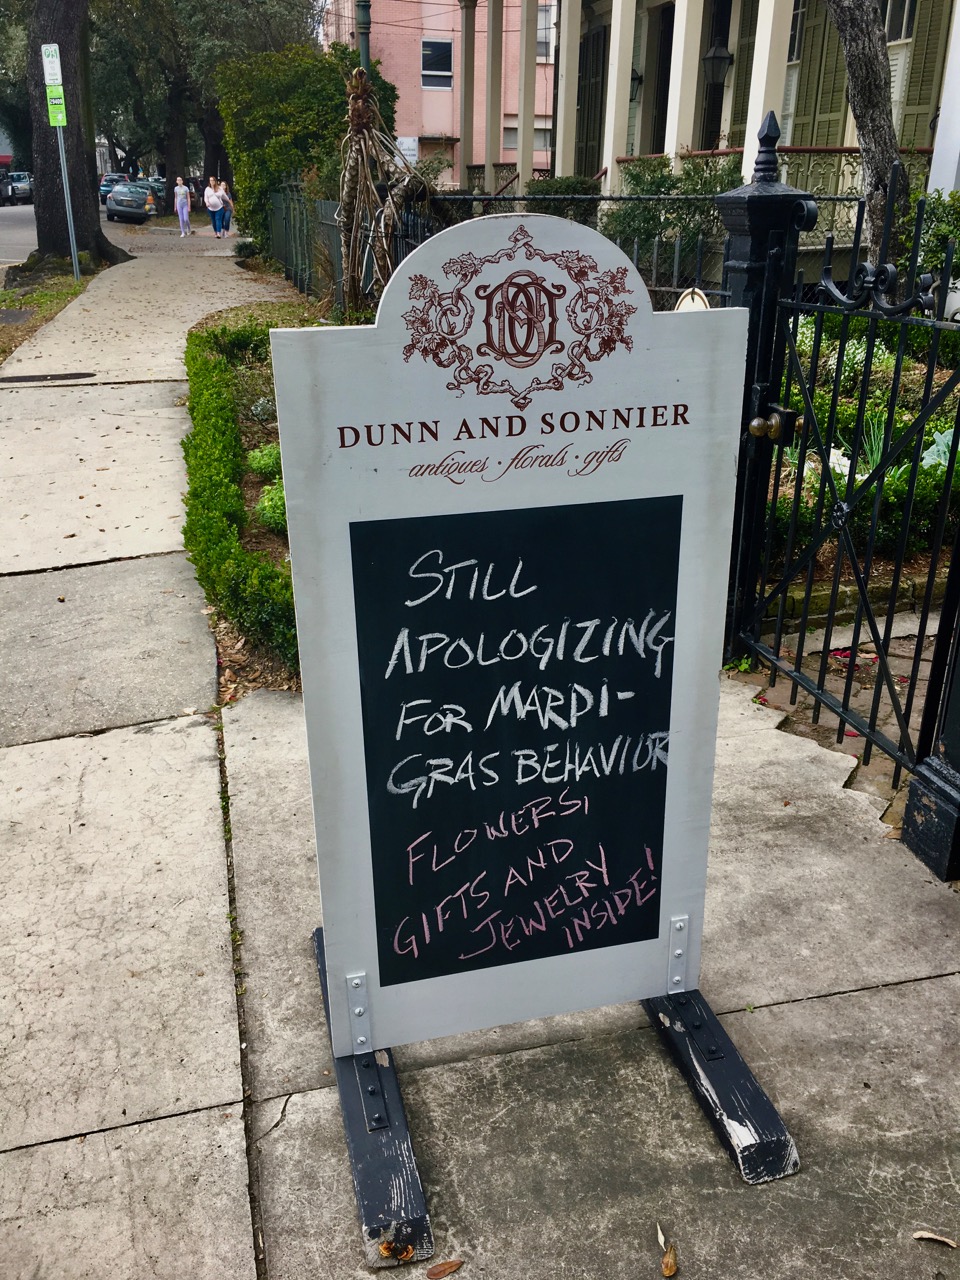 DUNN AND SONNIER
antiques · florals · gifts
STILL
APOLOGIZING
FOR MARDI-
GRAS BEHAVIOR
FLOWERS,
GIFTS AND
JEWELRY
INSIDE!